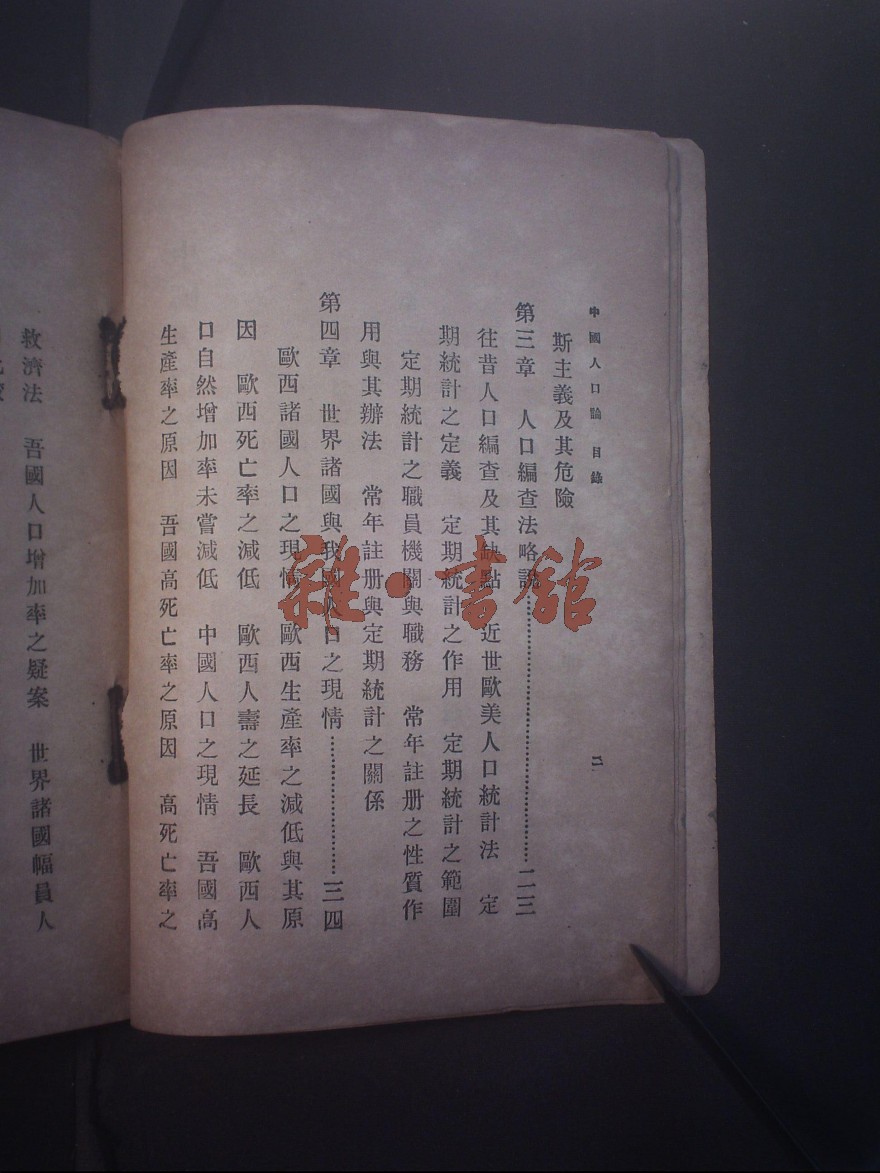 中國人口論 目錄 二
斯主義及其危險
第三章 人口編查法略說……………………二三
往昔人口編查及其缺點 近世歐美人口統計法 定
期統計之定義 定期統計之作用 定期統計之範圍
定期統計之職員機關與職務 常年註册之性質作
用與其辦法 常年註册與定期統計之關係
第四章 世界諸國與我國人口之現情……………………三四
歐西諸國人口之現情 歐西生產率之減低與其原
因 歐西死亡率之減低 歐西人壽之延長 歐西人
口自然增加率未嘗減低 中國人口之現情 吾國高
生產率之原因 吾國高死亡率之原因 高死亡率之
救濟法 吾國人口增加率之疑案 世界諸國幅員人
雜·書館